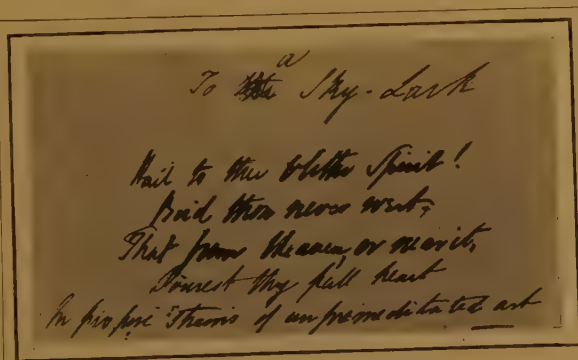 To a Sky-Lark
Hail to thee blithe Spirit!
Bird thou never wert,
That from Heaven, or near it,
Pourest thy full heart
In profuse strains of unpremeditated art